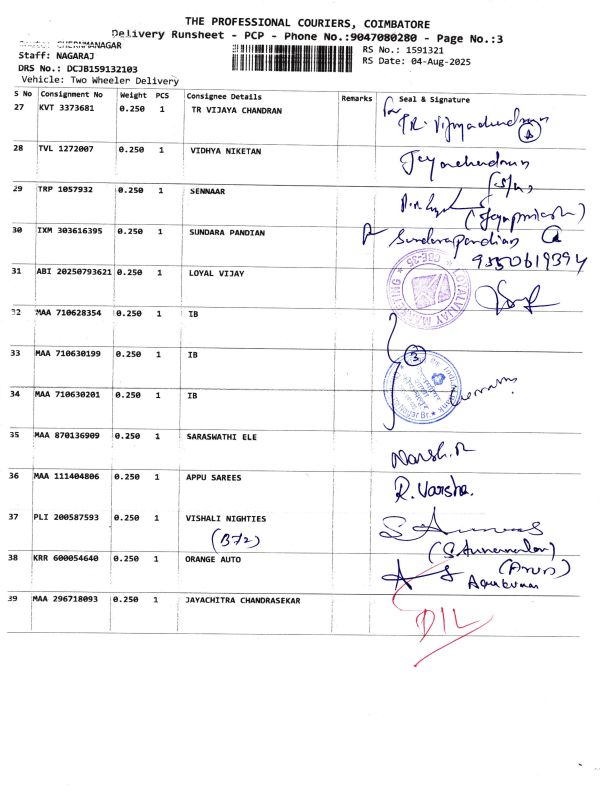 THE PROFESSIONAL COURIERS, COIMBATORE
Delivery Runsheet - PCP - Phone No.:9047080280 - Page No.:3
CHERMANAGAR
Staff: NAGARAJ
RS No.: 1591321
DRS No.: DCJB159132103
RS Date: 04-Aug-2025
Vehicle: Two Wheeler Delivery
S No Consignment No Weight PCS Consignee Details Remarks Seal & Signature
27 KVT 3373681 0.250 1 TR VIJAYA CHANDRAN
TR. Vijayachandran
28 TVL 1272007 0.250 1 VIDHYA NIKETAN
Jeyachandran
29 TRP 1057932 0.250 1 SENNAAR
(Jeyaprakash)
30 IXM 303616395 0.250 1 SUNDARA PANDIAN
Sundarapandian
31 ABI 20250793621 0.250 1 LOYAL VIJAY
32 MAA 710628354 0.250 1 IB
33 MAA 710630199 0.250 1 IB
3
34 MAA 710630201 0.250 1 IB
35 MAA 870136909 0.250 1 SARASWATHI ELE
Harsh.R
36 MAA 111404806 0.250 1 APPU SAREES
R. Varsha.
37 PLI 200587593 0.250 1 VISHALI NIGHTIES
(B72)
38 KRR 600054640 0.250 1 ORANGE AUTO
(Arun)
39 MAA 296718093 0.250 1 JAYACHITRA CHANDRASEKAR
D/L